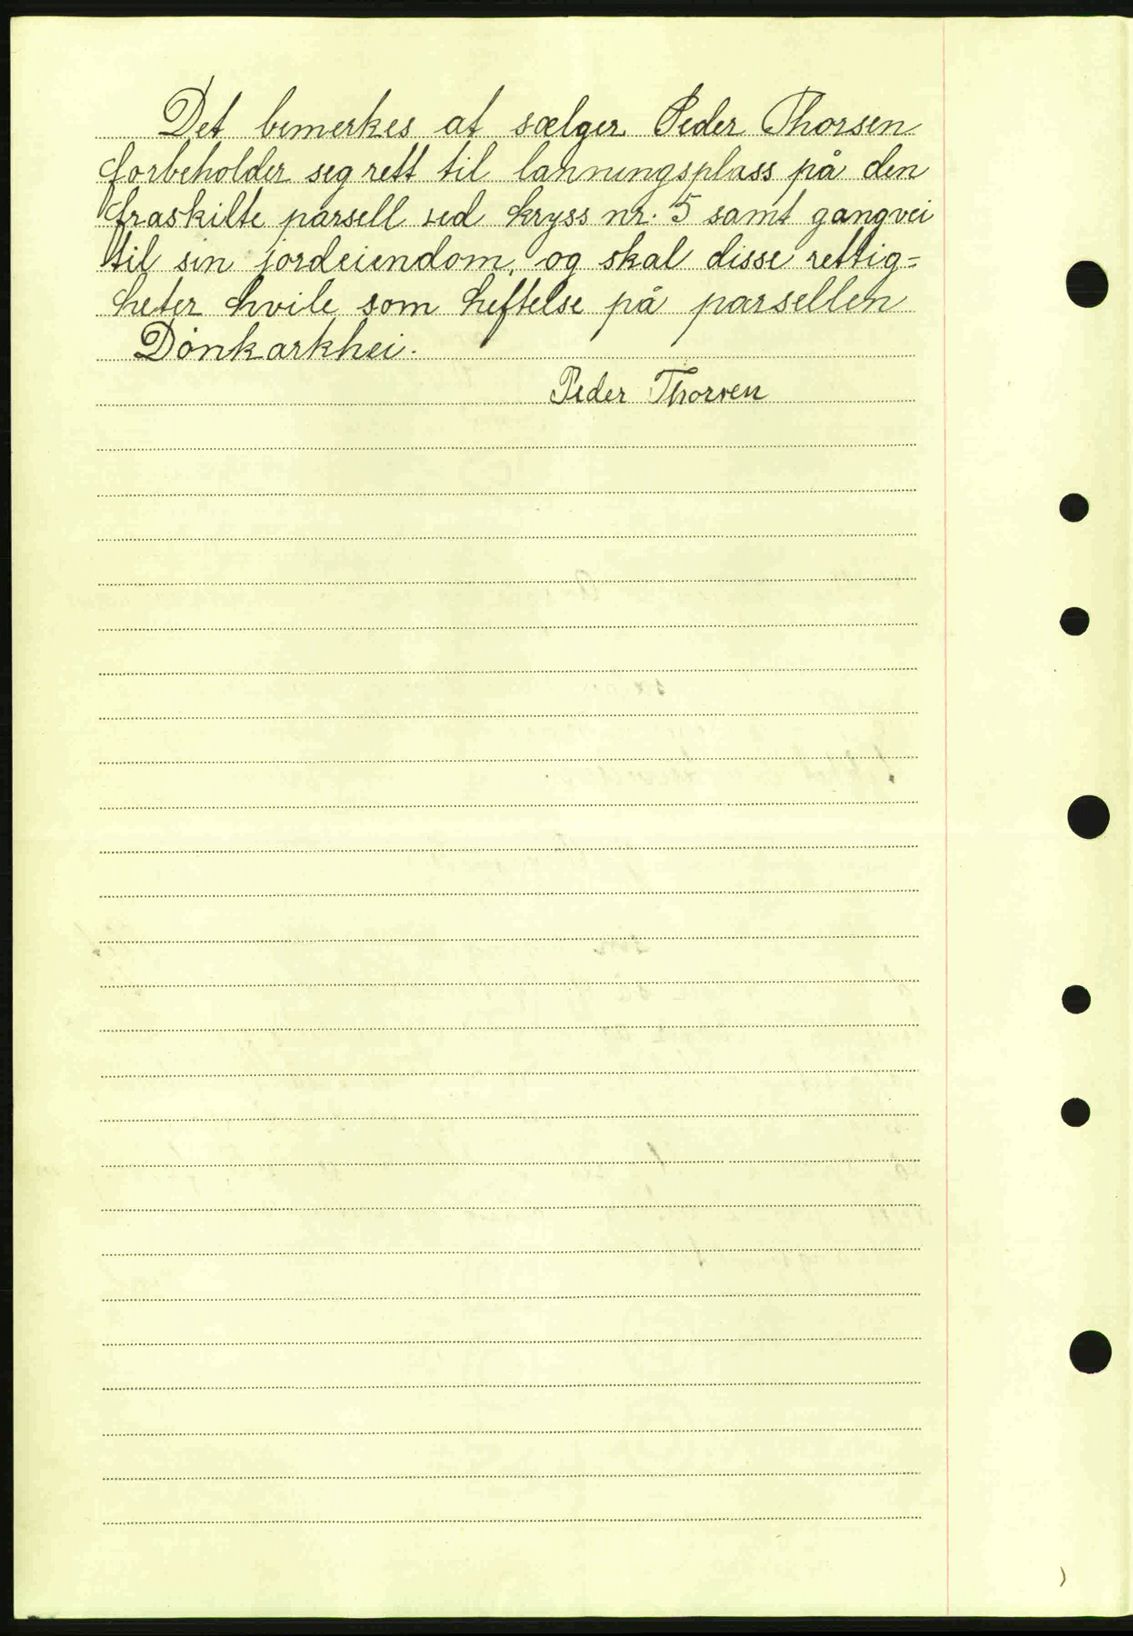 Det bemerkes at sælger Peder Thorsen
forbeholder seg rett til lanningsplass på den
fraskilte parsell ved kryss nr. 5 samt gangvei
til sin jordeiendom, og skal disse rettig=
heter hvile som heftelse på parsellen
Dønkarkhei.
Peder Thorsen